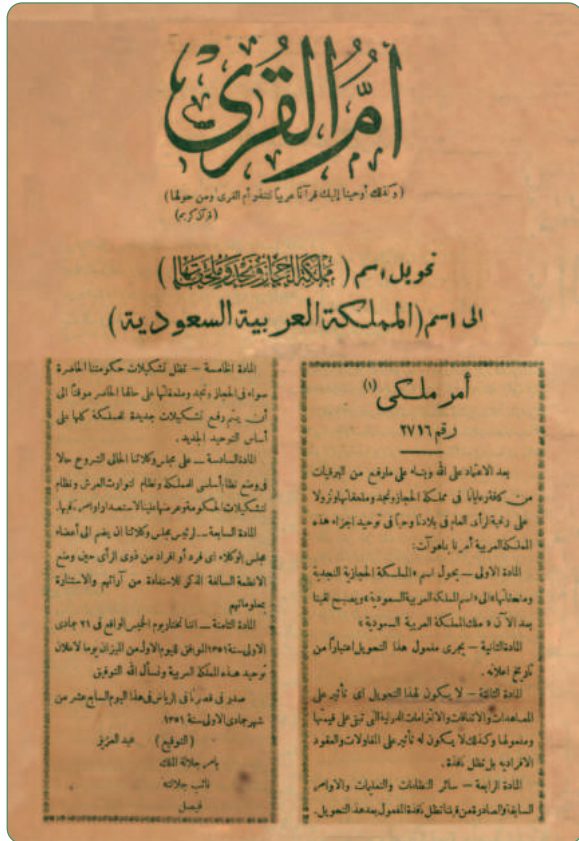 أم القرى
(وكذلك أوحينا إليك قرآنا عربيا لتنذر أم القرى ومن حولها)
(قرآن كريم)
تحويل اسم (مملكة الحجاز ونجد وملحقاتها)
الى اسم (المملكة العربية السعودية)
أمر ملكي (١)
رقم ٢٧١٦
بعد الاعتماد على الله وبناء على مارفع من البرقيات
من كافة رعايانا في مملكة الحجاز ونجد وملحقاتها ونزولا
على رغبة الرأى العام فى بلادنا وحبا فى توحيد اجزاء هذه
المملكة العربية أمرنا بما هو آت:
المادة الاولى – يحول اسم «المملكة الحجازية النجدية
وملحقاتها» الى «اسم المملكة العربية السعودية» ويصبح لقبنا
بعد الآن «ملك المملكة العربية السعودية»
المادة الثانية – يجرى مفعول هذا التحويل اعتبارا من
تاريخ اعلانه .
المادة الثالثة – لا يكون لهذا التحويل اى تأثير على
المعاهدات والاتفاقات والالتزامات الدولية التى تبقى على قيمتها
ومفعولها وكذلك لا يكون له تأثير على المقاولات والعقود
الافرادية بل تظل نافذة .
المادة الرابعة – سائر النظامات والتعليمات والاوامر
السابقة والصادرة من قبلنا تظل نافذة المفعول بعد هذا التحويل .
المادة الخامسة – تظل تشكيلات حكومتنا الحاضرة
سواء فى الحجاز ونجد وملحقاتها على حالها الحاضر موقتا الى
أن يتم وضع تشكيلات جديدة للمملكة كلها على
أساس التوحيد الجديد .
المادة السادسة – على مجلس وكلائنا الحالى الشروع حالا
فى وضع نظام أساسى للمملكة ونظام لتوارث العرش ونظام
لتشكيلات الحكومة وعرضها علينا لاستصدار اوامرنا فيها .
المادة السابعة – لرئيس مجلس وكلائنا ان يضم الى أعضاء
مجلس الوكلاء اى فرد أو افراد من ذوى الرأى حين وضع
الانظمة السالفة الذكر للاستفادة من آرائهم والاستنارة
بمعلوماتهم
المادة الثامنة – اننا نختار يوم الخميس الواقع فى ٢١ جمادى
الاولى سنة ١٣٥١ الموافق لليوم الاول من الميزان يوما لاعلان
توحيد هذه المملكة العربية ونسأل الله التوفيق
صدر فى قصرنا فى الرياض فى هذا اليوم السابع عشر من
شهر جمادى الاولى سنة ١٣٥١ .
(التوقيع) عبد العزيز
بامر جلالة الملك
نائب جلالته
فيصل